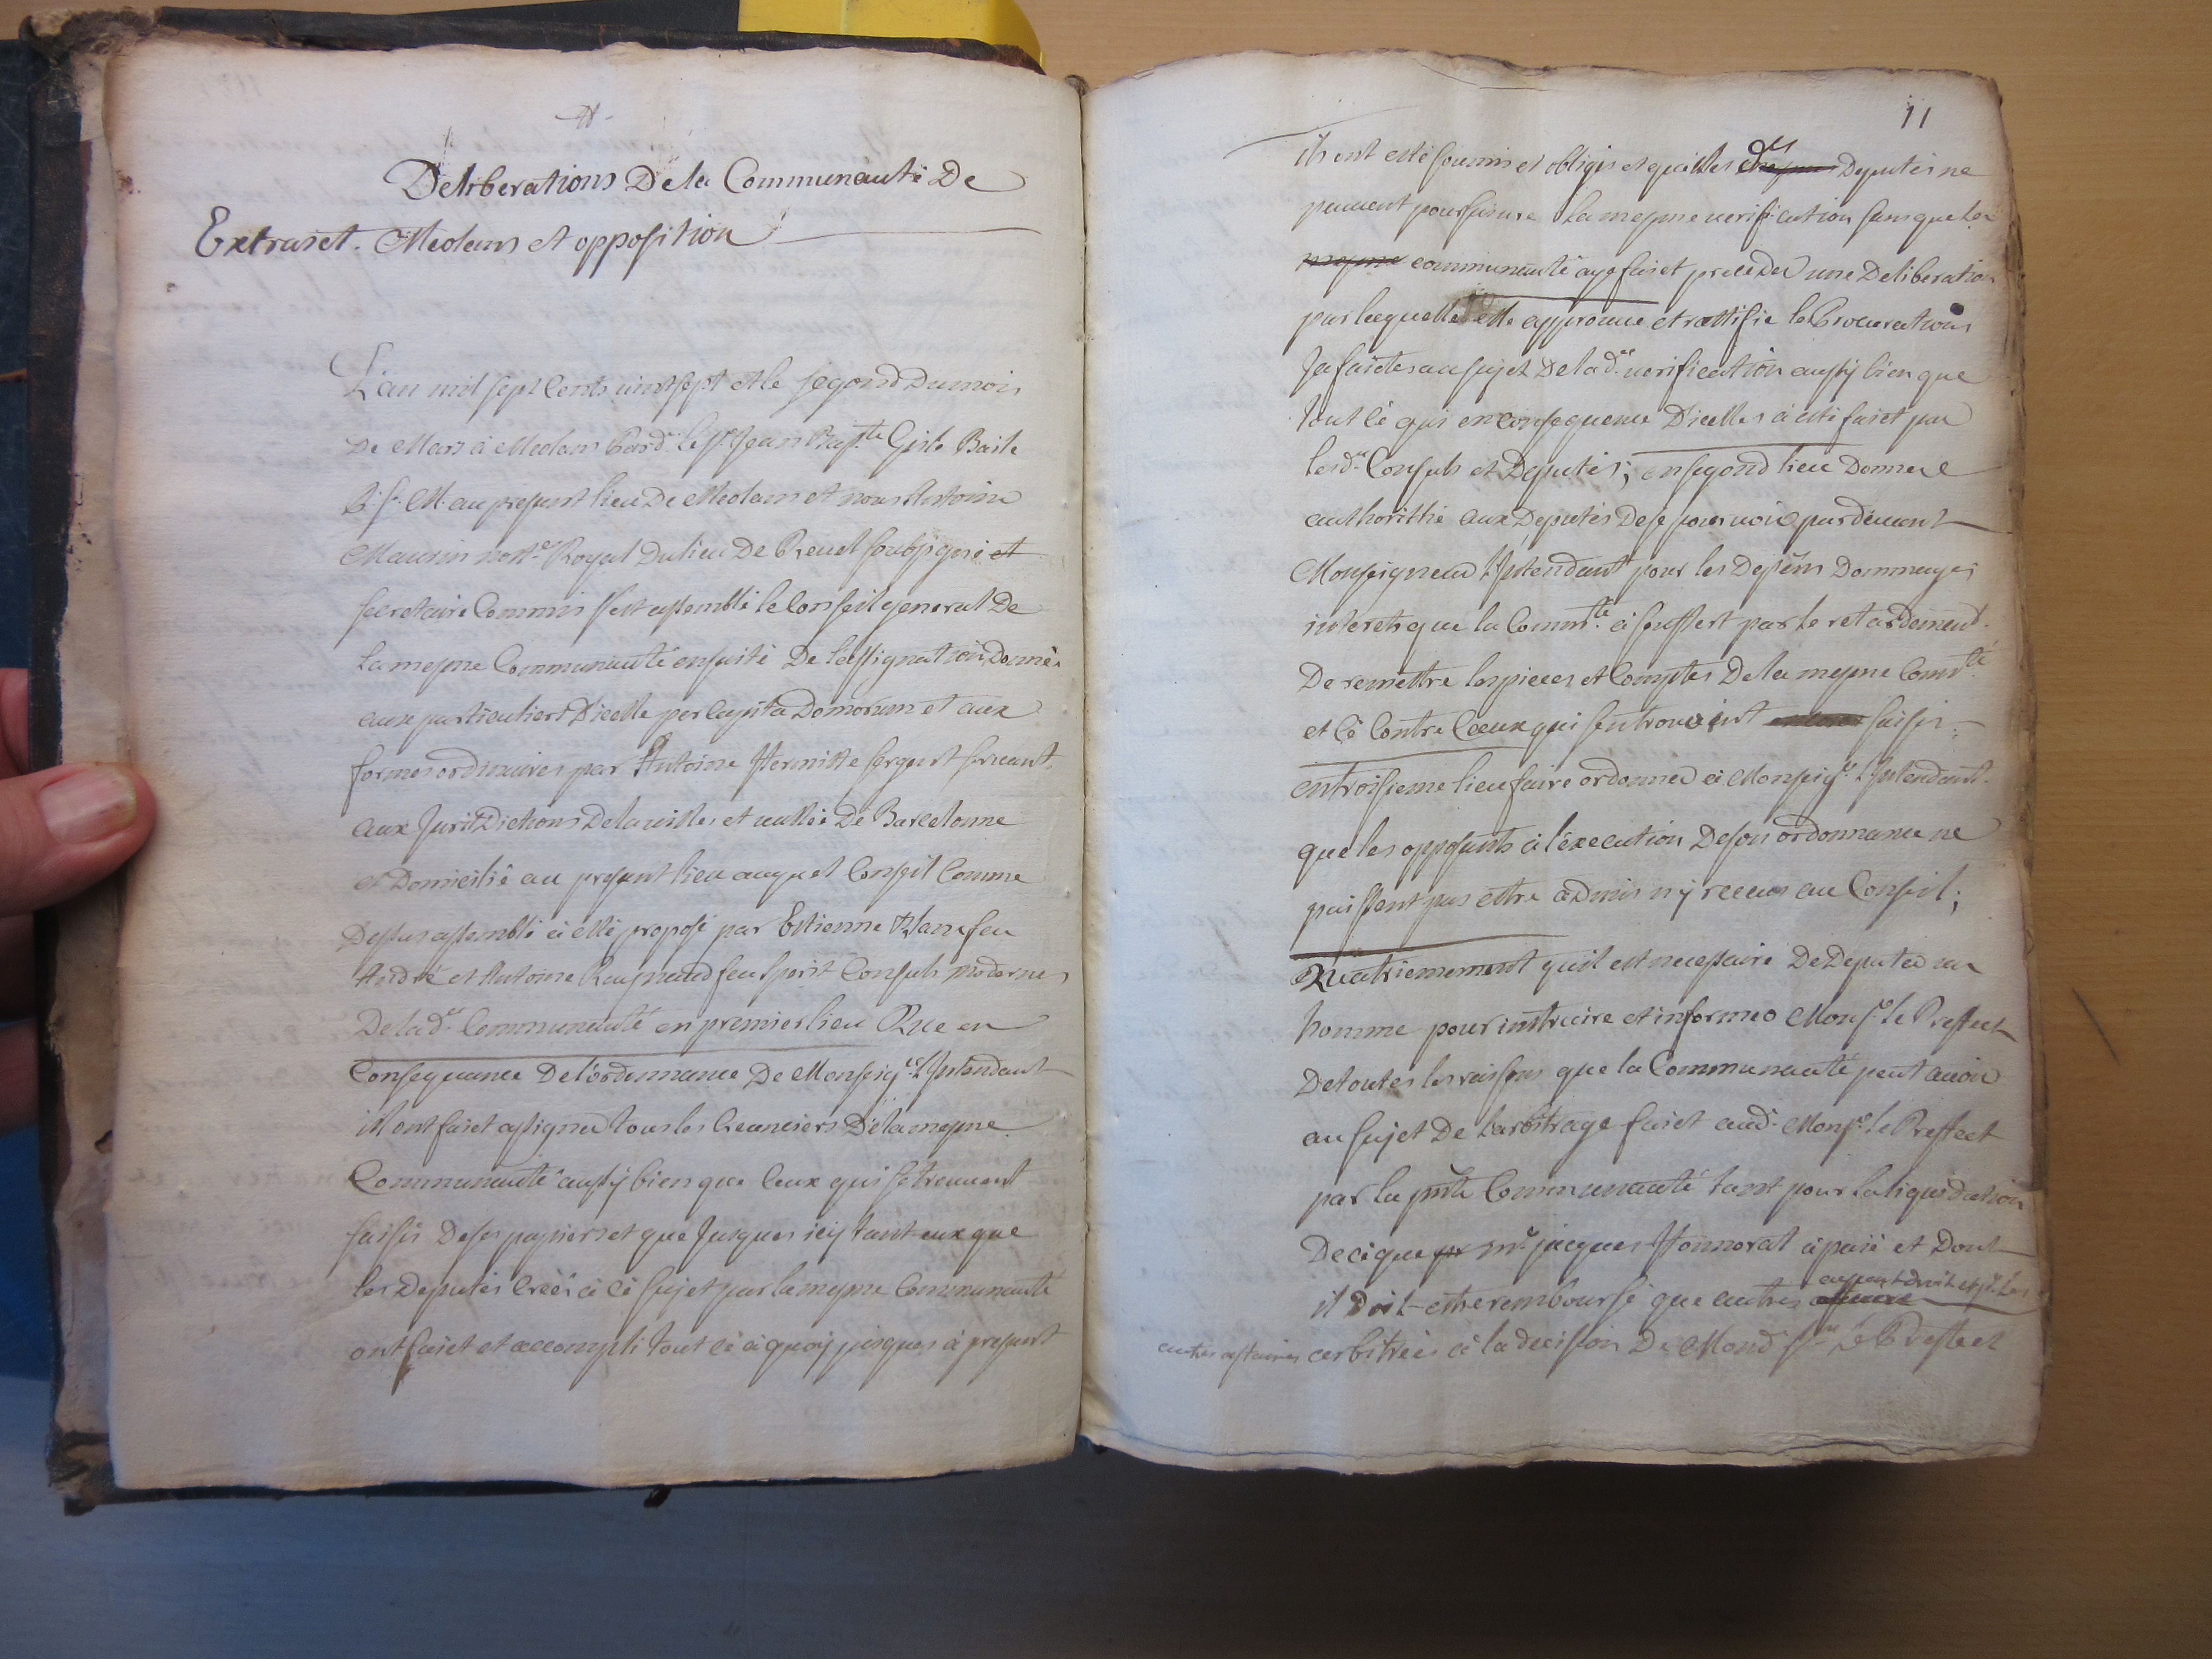 Deliberations De la Communauté De
Extraict. Meolans et opposition
L'an mil sept cents vint sept et le segond du mois
De Mars à Meolans pard. le sr. Jean Bap.te Gile Baile
B. f. M. au present lieu De Meolans et nous Antoine
Maurin nott.e Royal du lieu De Reuel soubsigné et
secretaire Commis s'est assemblé le Conseil general De
la mesme Communauté ensuite De l'assignation Donné
aux particuliers D'icelle per capita Domorum et aux
formes ordinaires par Antoine Hermitte sergent seruant
aux JurisDictions De la ville et vallée De Barcelonne
et Domicilié au present lieu auquel Conseil Comme
Dessus assemblé à esté proposé par Estienne Blanc feu
André et Antoine Raynaud feu Sperit Consuls modernes
De lad.e Communauté en premier lieu Que en
Consequence De l'ordonnance De Monseig.r L'Intendant
il ont faict assigner tous les Creanciers De la mesme
Communauté aussy bien que Ceux qui se treuuent
saisis De ses papiers et que Jusques icy tant eux que
les Deputés Creés à cé sujet par la mesme Communauté
ont faict et accompli tout cé à quoy jusques à present
11
ils ont esté soumis et obligés et que les des Deputés ne
peuuent poursuiure La mesme verification sans que la
mesme communauté aye faict preceder une Deliberation
par laquelle elle approuue et rattifie les Procurations
Ja faictes au sujet De lad.e verification aussy bien que
tout cé qui en Consequence D'icelles à esté faict par
lesd.s Consuls et Deputés; en segond lieu Donner
authoritté aux Deputés De se pouruoir par deuant
Monseigneur L'Intendant pour les Depens Dommages
interets que la Comm.té à souffert par le retardement
De remettre les pieces et Comptes De la mesme Comm.té
et cé Contre Ceeux qui s'en trouvoint saisis
en troisieme lieu faire ordonner à Monseig.r L'Intendant
que les opposants à l'execution De son ordonnance ne
puissent pas estre admis n'y receus au Conseil;
Quatriemement qu'il est necessaire De Deputer un
homme pour instruire et informer Mons.r le Preffect
De toutes les raisons que la Communauté peut auoir
au sujet De L'arbitrage faict aud. Mons.r le Preffect
par la pnte Communauté tant pour la liquidation
De cé que m.e jacques Honnorat à paié et Dont
il Doit estre remboursé que autres
ayent droit et p.r les
autres affaires arbitrées à la decission De Mond. s.r le Preffect